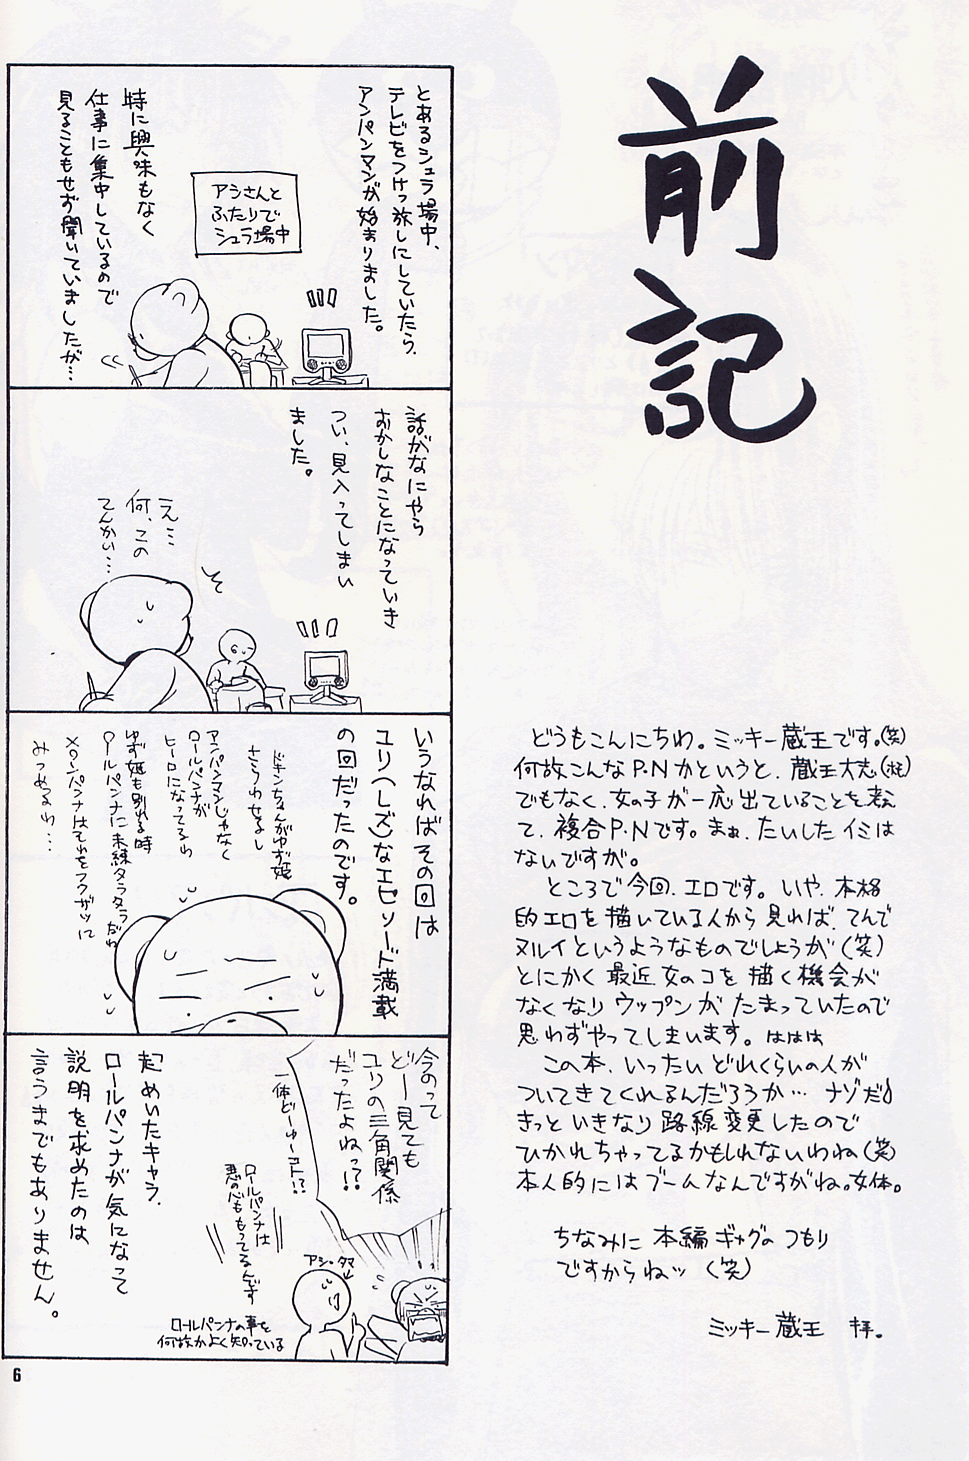 前記
とあるシュラ場中、
テレビをつけっ放しにしていたら、
アンパンマンが始まりました。
アシさんと
ふたりで
シュラ場中
特に興味もなく
仕事に集中しているので
見ることもせず聞いていましたが…
話がなにやら
おかしなことになっていき
つい、見入ってしまい
ました。
え…
何、この
てんかい…
いうなればその回は
ユリ(レズ)なエピソード満載
の回だったのです。
ドキンちゃんがゆず姫
さらわせるし
アンパンマンじゃなく
ロールパンナが
ヒーロになってるわ
ゆず姫も別れる時
ロールパンナに未練タラタラだわ
メロンパンナはそれをフクザツに
みつめるわ…
今のって
どー見ても
ユリの三角関係
だったよねっ?!
一体どーゆーコト!?
ロールパンナは
悪の心ももってるんです
アシ・タマ
ロールパンナの事を
何故かよく知っている
起めいたキャラ、
ロールパンナが気になって
説明を求めたのは
言うまでもありません。
どうもこんにちわ。ミッキー蔵王です。(笑)
何故こんなP.Nかというと、蔵王大志(注)
でもなく、女の子が一応出ていることを考え
て、複合P・Nです。まぁ、たいしたイミは
ないですが。
ところで今回、エロです。いや、本格
的エロを描いている人から見れば、てんで
ヌルイというようなものでしょうが(笑)
とにかく最近女のコを描く機会が
なくなりウップンがたまっていたので
思わずやってしまいます。ははは
この本、いったいどれくらいの人が
ついてきてくれるんだろうか…ナゾだ♪
きっといきなり路線変更したので
ひかれちゃってるかもしれないわね(笑)
本人的にはブームなんですがね。女体。
ちなみに本編ギャグのつもり
ですからねッ(笑)
ミッキー蔵王 拝。
6